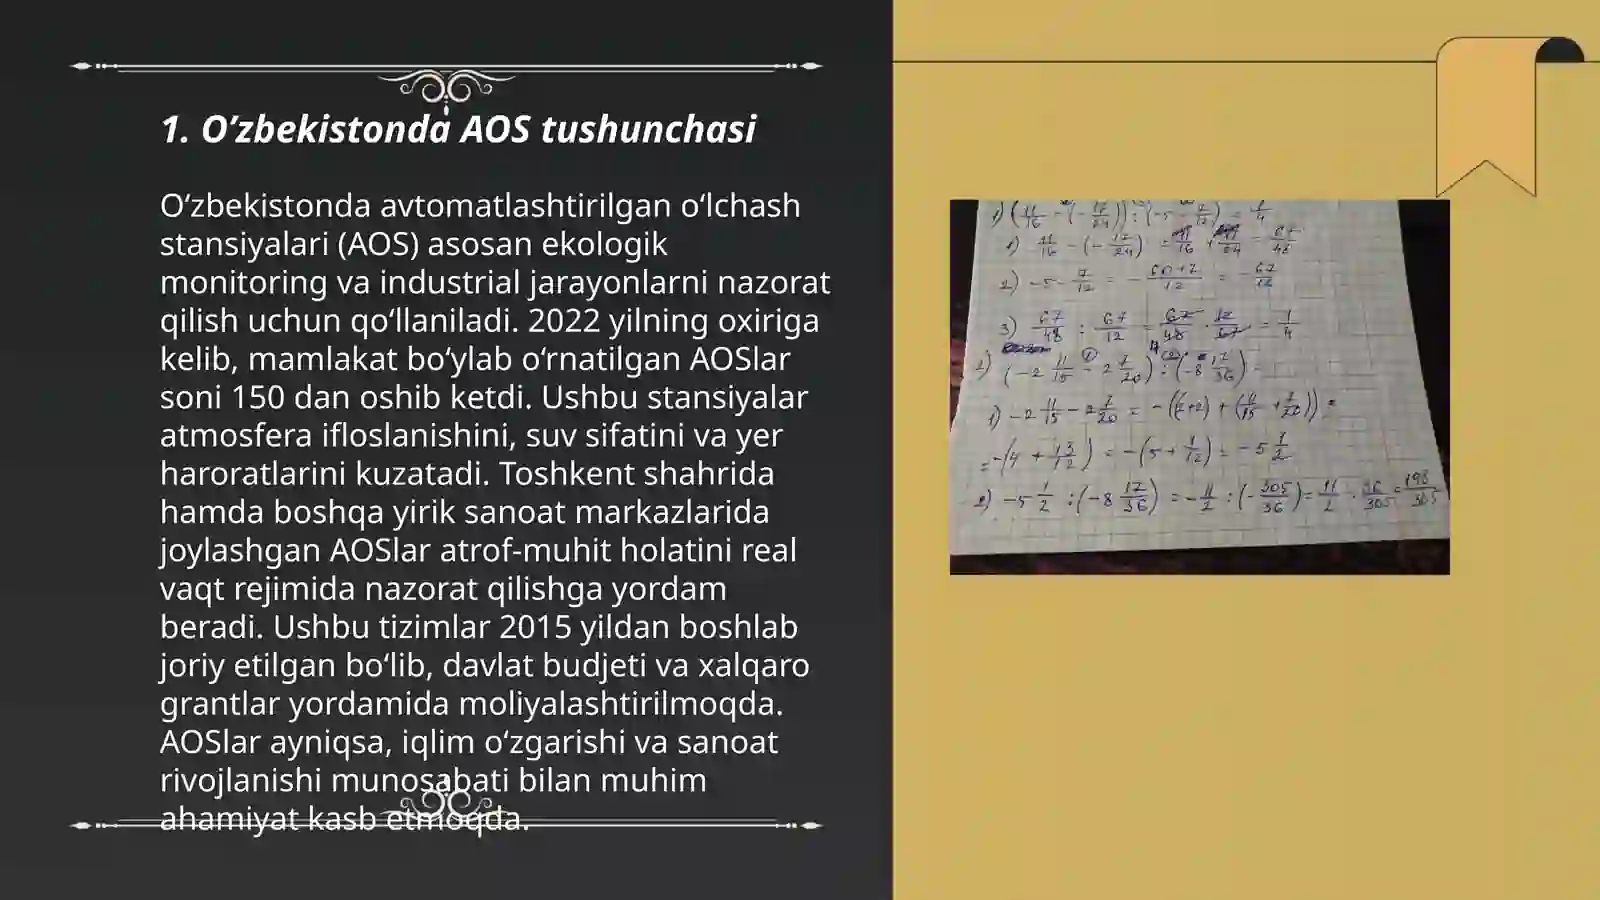 1. O’zbekistonda AOS tushunchasi
O‘zbekistonda avtomatlashtirilgan o‘lchash
stansiyalari (AOS) asosan ekologik
monitoring va industrial jarayonlarni nazorat
qilish uchun qo‘llaniladi. 2022 yilning oxiriga
kelib, mamlakat bo‘ylab o‘rnatilgan AOSlar
soni 150 dan oshib ketdi. Ushbu stansiyalar
atmosfera ifloslanishini, suv sifatini va yer
haroratlarini kuzatadi. Toshkent shahrida
hamda boshqa yirik sanoat markazlarida
joylashgan AOSlar atrof-muhit holatini real
vaqt rejimida nazorat qilishga yordam
beradi. Ushbu tizimlar 2015 yildan boshlab
joriy etilgan bo‘lib, davlat budjeti va xalqaro
grantlar yordamida moliyalashtirilmoqda.
AOSlar ayniqsa, iqlim o‘zgarishi va sanoat
rivojlanishi munosabati bilan muhim
ahamiyat kasb etmoqda.
2) -5 - 7/12 = - (60+7)/12 = - 67/12
3) 67/48 : 67/12 = 67/48 · 12/67 = 1/4
1) -2 11/15 - 2 7/20 = -((2+2) + (11/15 + 7/20)) =
= -(4 + 13/12) = -(5 + 1/12) = -5 1/2
2) -5 1/2 : (-8 17/36) = - 11/2 : (- 305/36) = 11/2 · 36/305 = 198/305